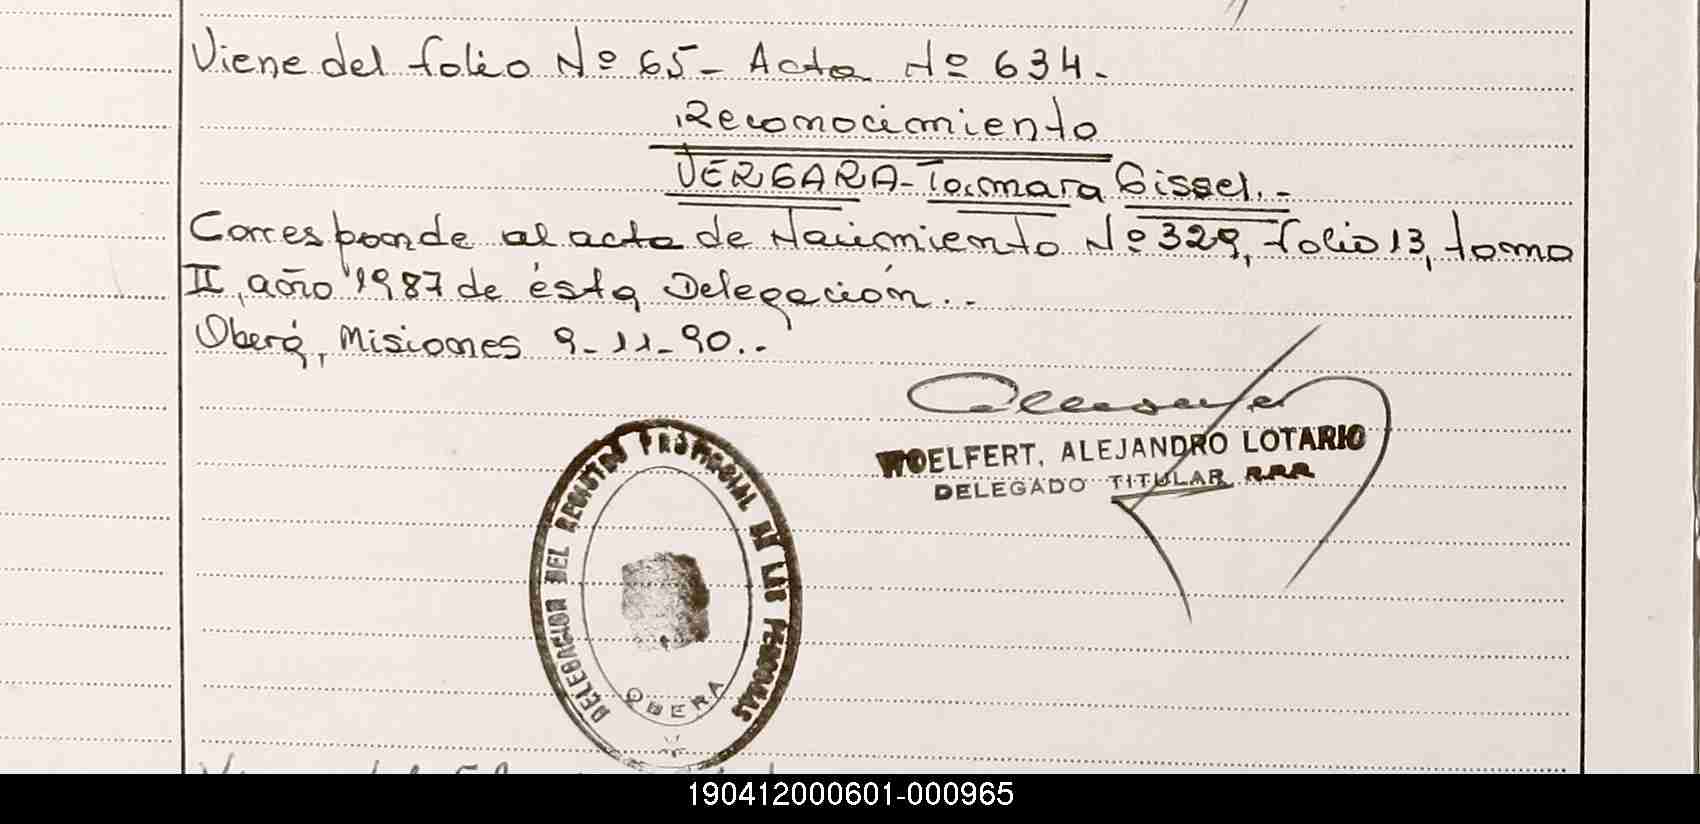 Viene del folio Nº 65- Acta Nº 634.
Reconocimiento
VERGARA-Tamara Gissel.-
Corresponde al acta de Nacimiento Nº 329, folio 13, tomo
II, año 1987 de ésta Delegación..
Oberá, Misiones 9-11-90..
WOELFERT, ALEJANDRO LOTARIO
DELEGADO TITULAR R.R.R
DELEGACION DEL REGISTRO PROVINCIAL DE LAS PERSONAS
OBERA
190412000601-000965